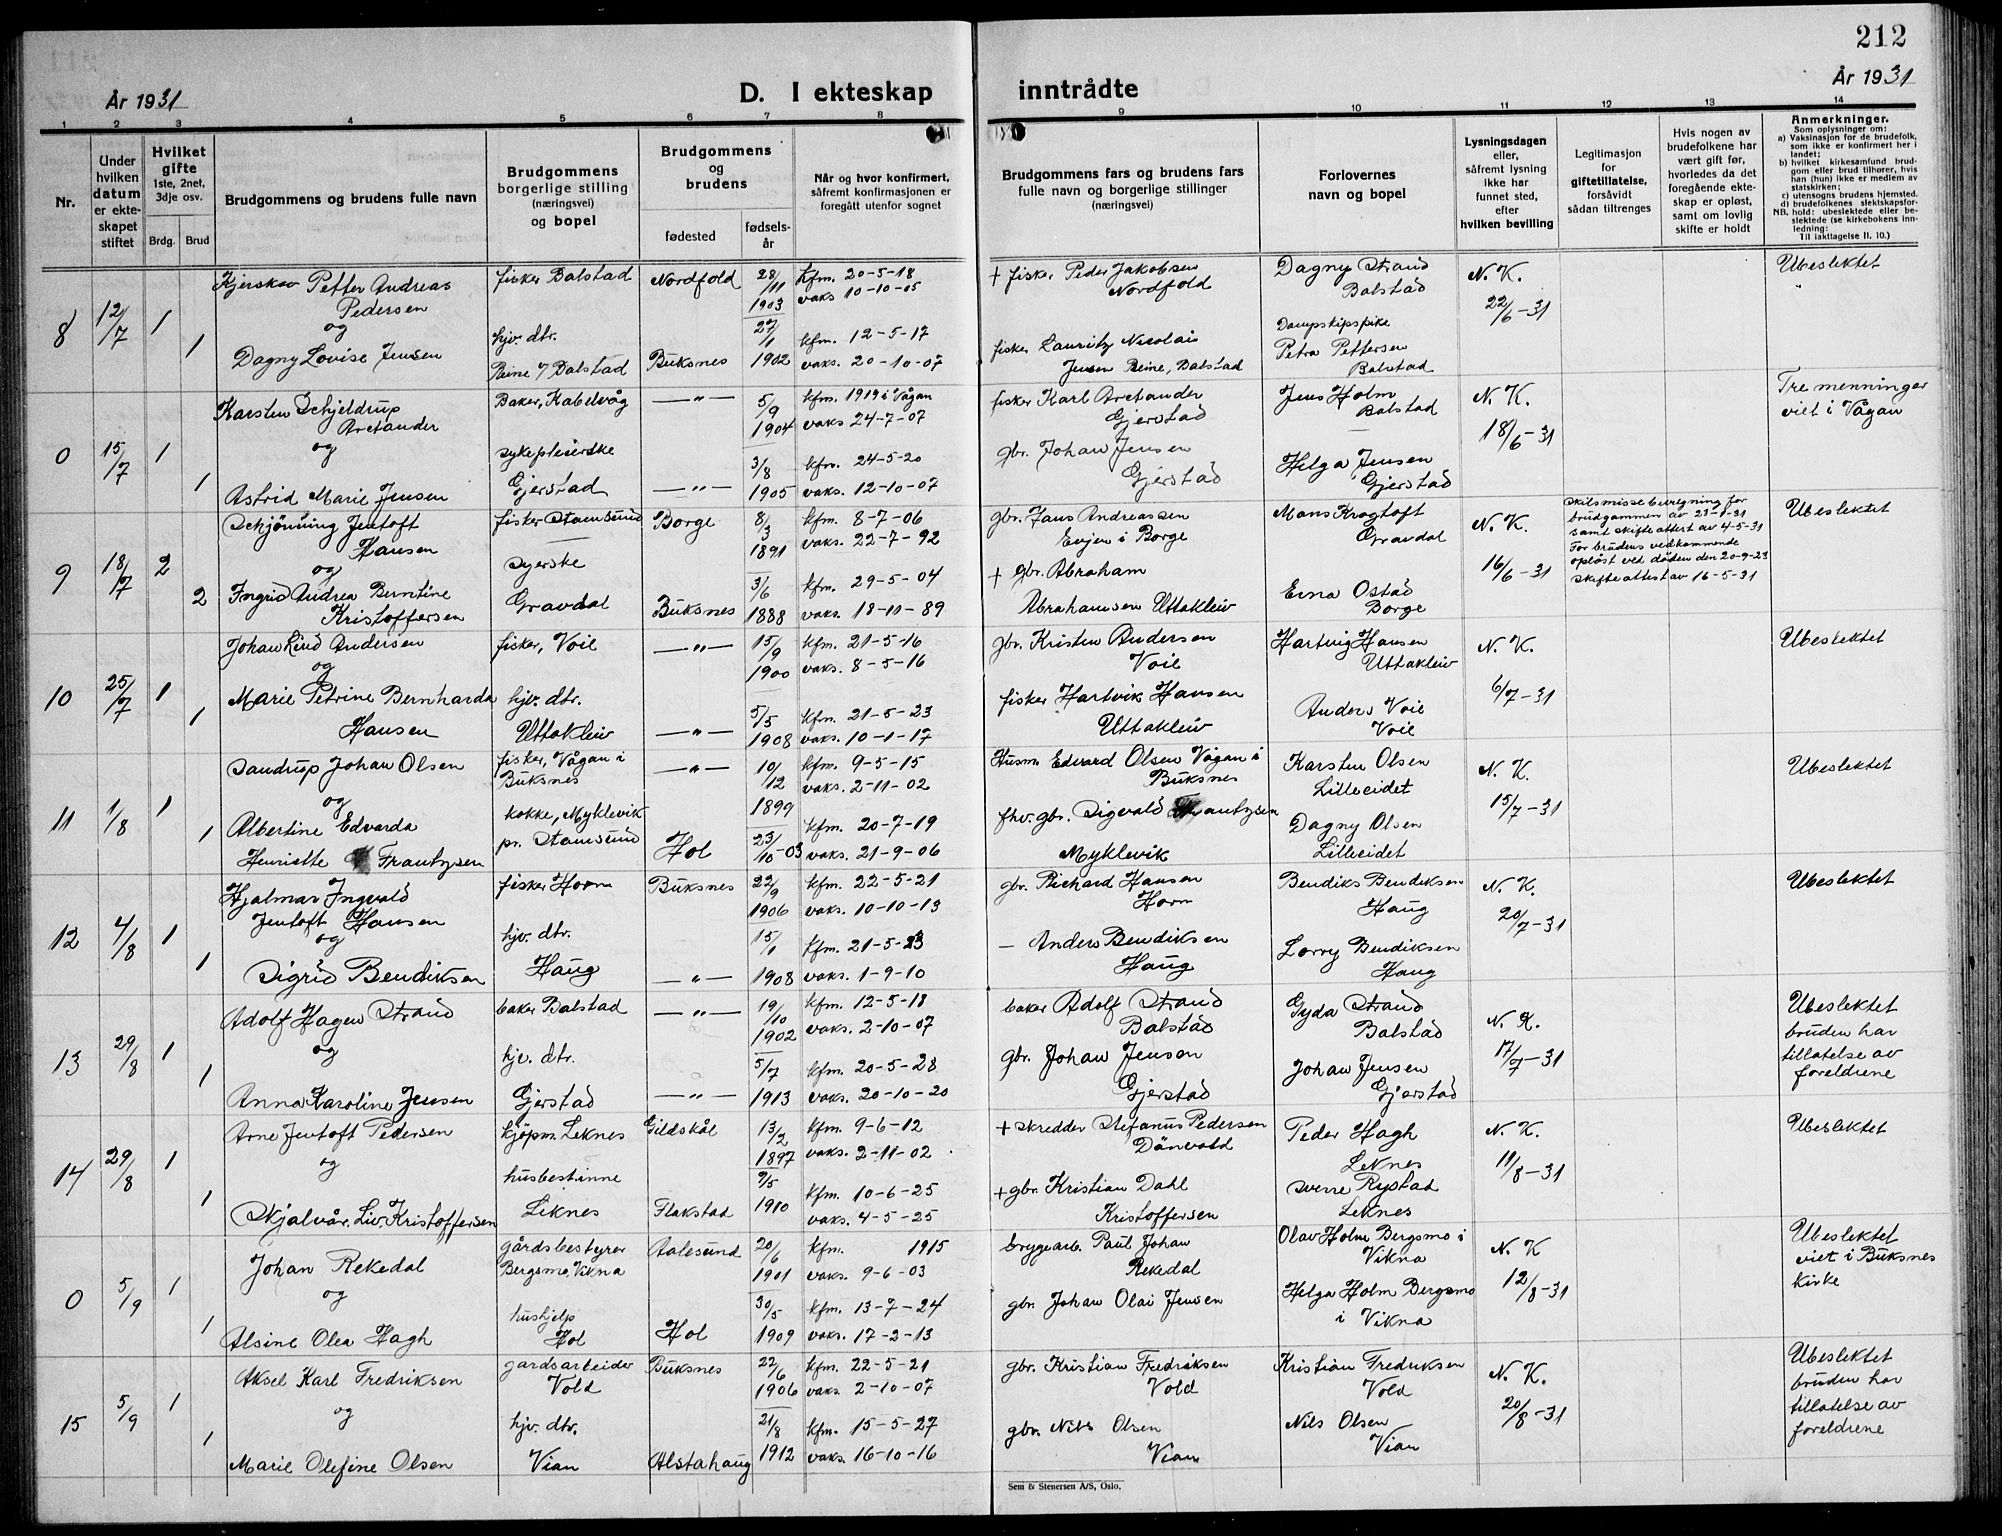 212
År 1931
D. I ekteskap
inntrådte
År 1931
1 2 3 4 5 6 7 8 9 10 11 12 13 14
Nr.
Under
hvilken
datum
er ekte-
skapet
stiftet
Hvilket
gifte
1ste, 2net,
3dje osv.
Brdg. Brud
Brudgommens og brudens fulle navn
Brudgommens
borgerlige stilling
(næringsvei)
og bopel
Brudgommens
og
brudens
fødested
fødsels-
år
Når og hvor konfirmert,
såfremt konfirmasjonen er
foregått utenfor sognet
Brudgommens fars og brudens fars
fulle navn og borgerlige stillinger
(næringsvei)
Forlovernes
navn og bopel
Lysningsdagen
eller,
såfremt lysning
ikke har
funnet sted,
efter
hvilken bevilling
Legitimasjon
for
giftetillatelse,
forsåvidt
sådan tiltrenges
Hvis nogen av
brudefolkene har
vært gift før,
hvorledes da det
foregående ekte-
skap er opløst,
samt om lovlig
skifte er holdt
Anmerkninger.
Som oplysninger om:
a) Vaksinasjon for de brudefolk,
som ikke er konfirmert her i
landet;
b) hvilket kirkesamfund brud-
gom eller brud tilhører, hvis
han (hun) ikke er medlem av
statskirken;
c) utensogns brudens hjemsted.
d) brudefolkenes slektskapsfor-
NB. hold: ubeslektede eller be-
slektede (se kirkebokens inn-
ledning:
Til iakttagelse II. 10.)
8 12/7 1 1
Kjerskov Petter Andreas
Pedersen
og
Dagny Lovise Jensen
fisker Balstad
hjv. dtr.
Reine 7/ Balstad
Nordfold
Buksnes
28/11
1903
27/1
1902
kfm. 20-5-18
vaks 10-10-05
kfm. 12-5-17
vaks. 20-10-07
+ fisker Peder Jakobsen
Nordfold
fisker Lauritz Nicolai
Jensen Reine, Balstad
Dagny Strand
Balstad
Dampskipspike
Petra Pettersen
Balstad
N. K.
22/6-31
Ubeslektet
0 15/7 1 1
Karsten Schjeldrup
Arctander
og
Astrid Marie Jensen
Baker, Kabelvåg
sykepleierske
Gjerstad
— " —
— " —
5/9
1904
3/8
1905
kfm. 1919 i Vågan
vaks 24-7-07
kfm. 24-5-20
vaks. 12-10-07
fisker Karl Arctander
Gjerstad
gbr. Johan Jensen
Gjerstad
Jens Holm
Balstad
Helga Jensen
Gjerstad
N. K.
18/6-31
Tremenninger
viet i Vågan
9 18/7 2 2
Schjönning Jentoft
Hansen
og
Ingrid Andrea Berntine
Kristoffersen
fisker Stamsund
syerske
Gravdal
Borge
Buksnes
8/3
1891
3/6
1888
kfm. 8-7-06
vaks. 22-7-92
kfm. 29-5-04
vaks. 18-11-89
gbr. Hans Andreassen
Evjen i Borge
+ gbr. Abraham
Abrahamsen Uttakleiv
Mons Krogtoft
Gravdal
Erna Ostad
Borge
N. K.
16/6-31
skilsmissebevegning for
brudgommen av 23-4-31
samt skifteattest av 4-5-31
For brudens vedkommende
opløst ved døden den 20-9-23
skifteattest av 16-5-31
Ubeslektet
10 25/7 1 1
Johan Lind Andersen
og
Marie Petrine Bernharda
Hansen
fisker, Voie
hjv. dtr.
Uttakleiv
— " —
— " —
15/9
1900
5/5
1908
kfm. 21-5-16
vaks. 8-5-16
kfm. 21-5-23
vaks. 10-1-17
gbr. Kristen Andersen
Voie
fisker Hartvik Hansen
Uttakleiv
Hartvig Hansen
Uttakleiv
Anders Voie
Voie
N. K.
6/7-31
Ubeslektet
11 1/8 1 1
Sandrup Johan Olsen
og
Albertine Edvarda
Henriette Frantzsen
fisker, Vågan i
Buksnes
kokke, Myklevik
pr. Stamsund
— " —
Hol
10/12
1899
23/10-03
kfm. 9-5-15
vaks. 2-11-02
kfm. 20-7-19
vaks. 21-9-06
Husm. Edvard Olsen Vågan i
Buksnes
fhv. gbr. Sigvald Frantzsen
Myklevik
Karsten Olsen
Lilleeidet
Dagny Olsen
Lilleeidet
N. K.
15/7-31
Ubeslektet
12 4/8 1 1
Hjalmar Ingvald
Jentoft Hansen
og
Sigrid Bendiksen
fisker Horn
hjv. dtr.
Haug
Buksnes
— " —
22/9
1906
15/1
1908
kfm. 22-5-21
vaks. 10-10-13
kfm. 21-5-23
vaks. 1-9-10
gbr. Richard Hansen
Horn
— Anders Bendiksen
Haug
Bendiks Bendiksen
Haug
Lorry Bendiksen
Haug
N. K.
20/7-31
Ubeslektet
13 29/8 1 1
Adolf Hagen Strand
og
Anna Karoline Jensen
baker Balstad
hjv. dtr.
Gjerstad
— " —
— " —
19/10
1902
5/7
1913
kfm. 12-5-18
vaks. 2-10-07
kfm. 20-5-28
vaks. 20-10-20
baker Adolf Strand
Balstad
gbr. Johan Jensen
Gjerstad
Gyda Strand
Balstad
Johan Jensen
Gjerstad
N. K.
17/7-31
Ubeslektet
bruden har
tillatelse av
foreldrene
14 29/8 1 1
Arne Jentoft Pedersen
og
Njalvår. Liv. Kristoffersen
kjöpm. Leknes
husbestinne
Leknes
Gildskål
Flakstad
13/2
1897
9/5
1910
kfm. 9-6-12
vaks. 2-11-02
kfm. 10-6-25
vaks. 4-5-25
+ skredder Stefanus Pedersen
Dönvold
+ gbr. Kristian Dahl
Kristoffersen
Peder Hagh
Leknes
Sverre Rystad
Leknes
N. K.
11/8-31
Ubeslektet
0 5/9 1 1
Johan Rekedal
og
Alsine Olea Hagh
gårdsbestyrer
Bergsmo, Vikna
hushjelp
Hol
Aalesund
Hol
20/6
1901
30/5
1909
kfm. 1915
vaks. 9-6-03
kfm. 13-7-24
vaks. 17-2-13
bryggearb. Paul Johan
Rekedal
gbr. Johan Olai Jensen
Olav Holm Bergsmo i
Vikna
Helga Holm Bergsmo
i Vikna
N. K
12/8-31
Ubeslektet
viet i Buksnes
kirke
15 5/9 1 1
Aksel Karl Fredriksen
og
Marie Olefine Olsen
gardsarbeider
Vold
hjv. dtr.
Vian
Buksnes
Alstahaug
22/6
1906
21/8
1912
kfm. 22-5-21
vaks 2-10-07
kfm. 15-5-27
vaks. 16-10-16
gbr. Kristian Fredriksen
Vold
gbr. Nils Olsen
Vian
Kristian Fredriksen
Vold
Nils Olsen
Vian
N. K.
20/8-31
Ubeslektet
bruden har
tillatelse av
foreldrene
Sem & Stenersen A/S, Oslo.